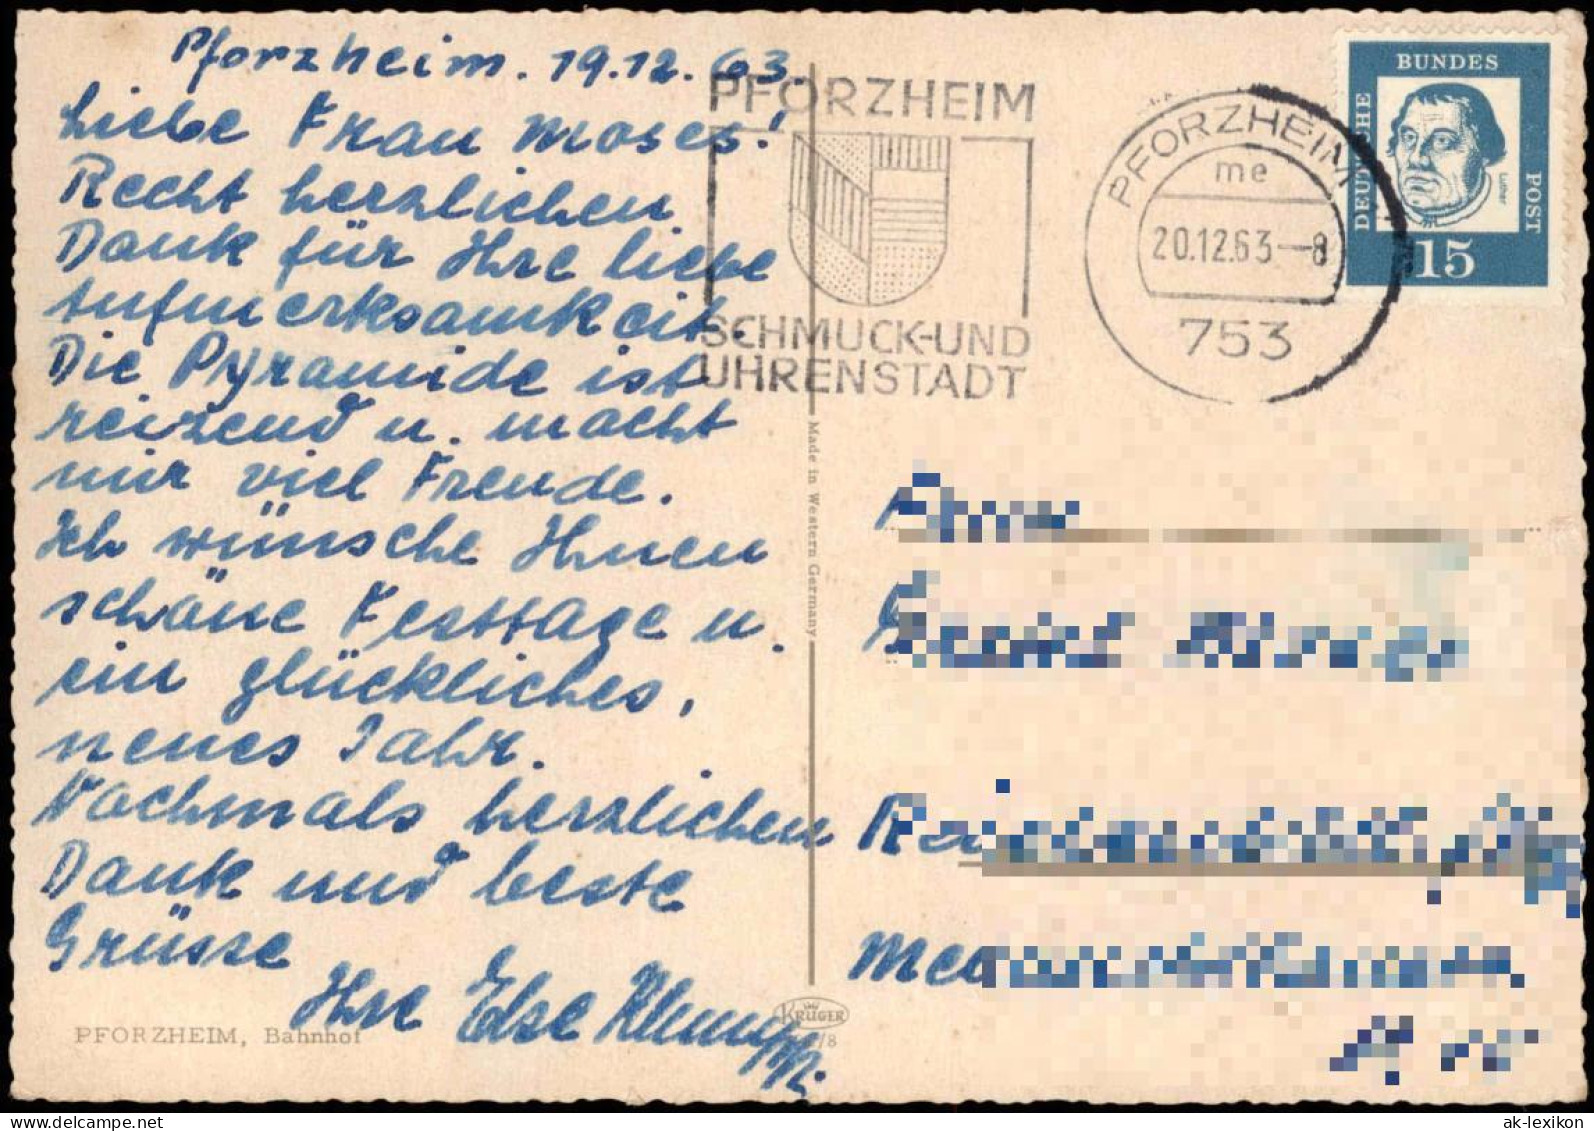 Pforzheim. 19.12.63.
Liebe Frau Moses!
Recht herzlichen
Dank für Ihre liebe
Aufmerksamkeit.
Die Pyramide ist
reizend u. macht
mir viel Freude.
Ich wünsche Ihnen
schöne Festtage u.
ein glückliches,
neues Jahr.
Nochmals herzlichen
Dank und beste
Grüsse
Ihre Else
PFORZHEIM, Bahnhof
PFORZHEIM
SCHMUCK-UND
UHRENSTADT
PFORZHEIM
me
20.12.63-8
753
DEUTSCHE
BUNDES
POST
Luther
15
Made in Western Germany
KRÜGER
delcampe.net
ak-lexikon